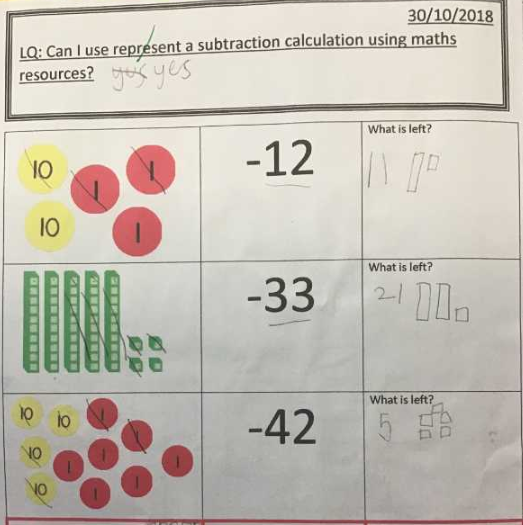 30/10/2018
LQ: Can I use represent a subtraction calculation using maths
resources? yus yes
10 1 1
10 1
-12
What is left?
11
-33
What is left?
21
10 10 1 1
10 1 1 1
10 1 1
-42
What is left?
5